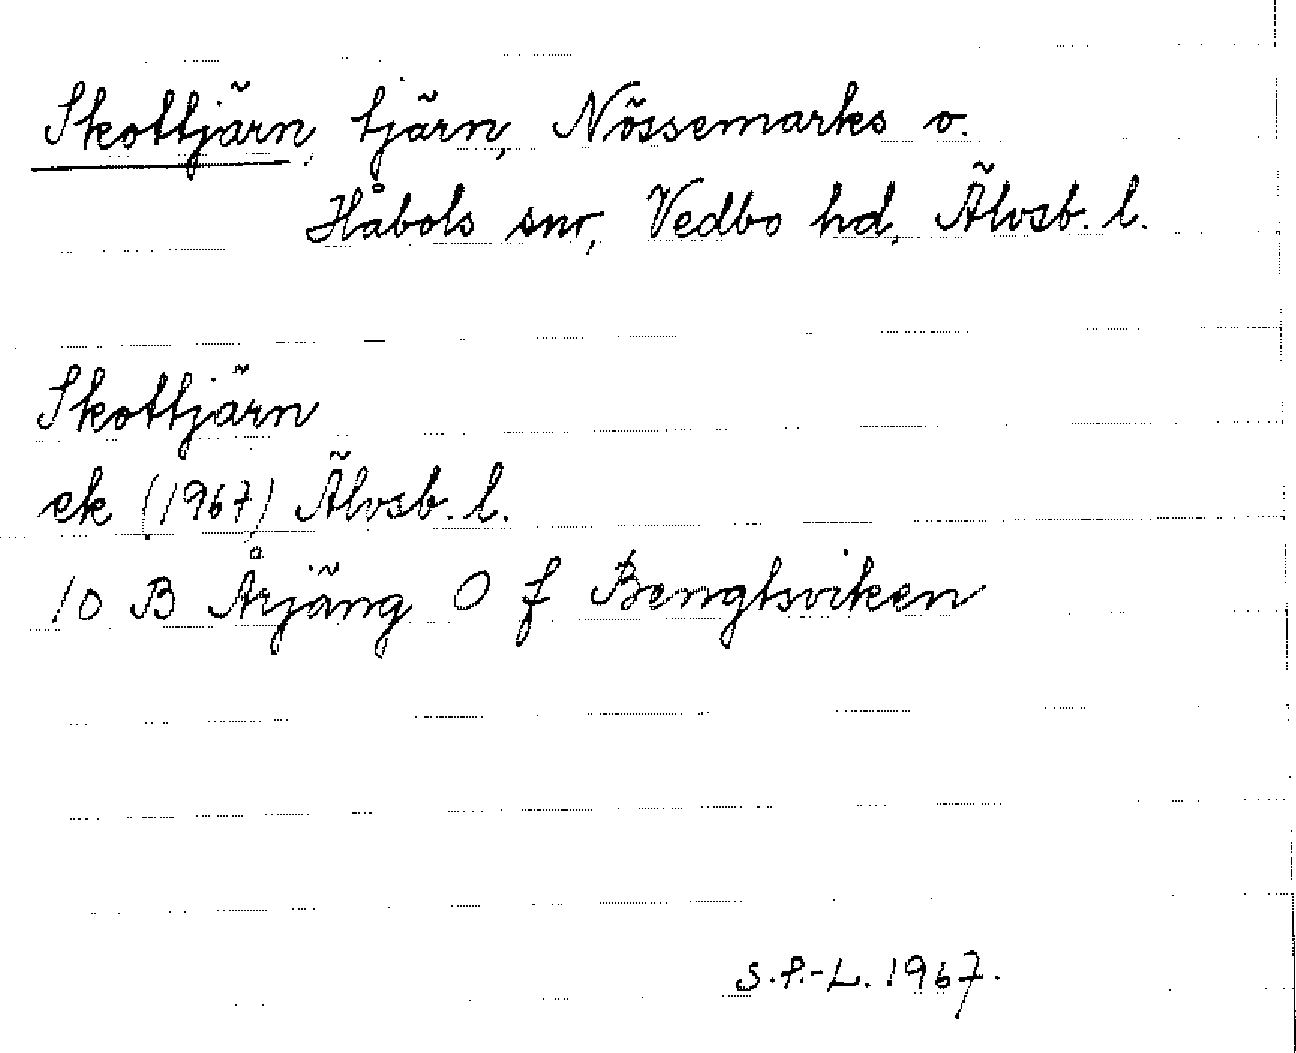 Skottjärn, tjärn, Nössemarks o.
Håbols snr, Vedbo hd, Älvsb. l.
Skottjärn
ek (1967) Älvsb. l.
10 B Årjäng O f Bengtsviken
S.P.-L. 1967.